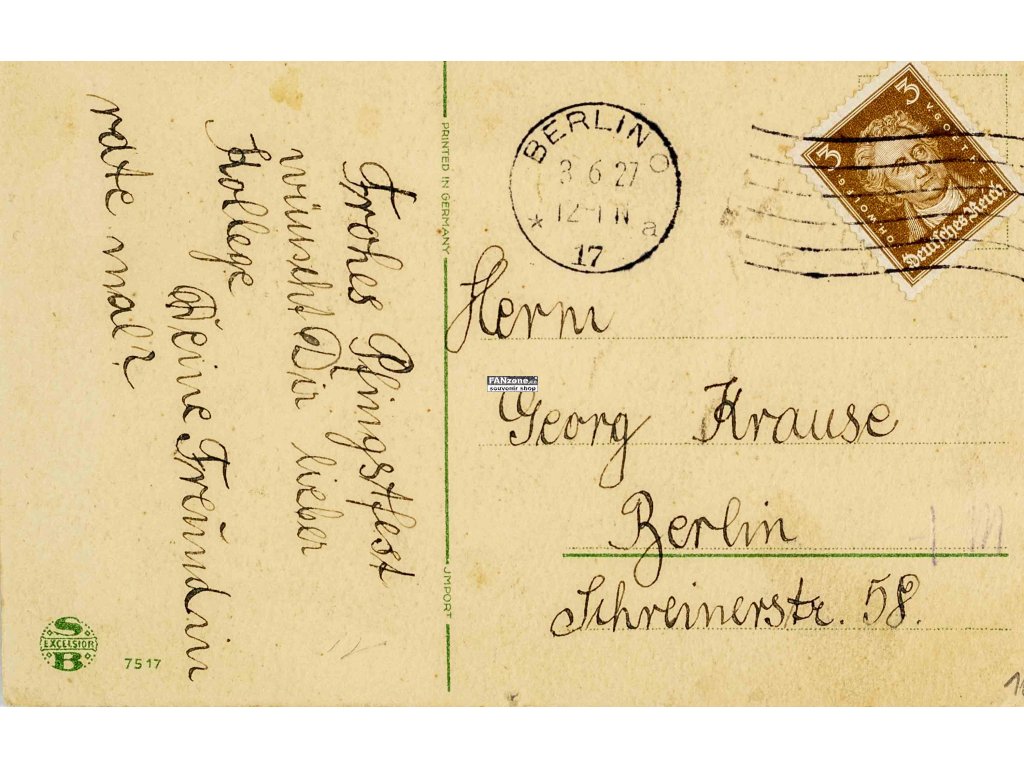 Frohes Pfingstfest
wünscht Dir lieber
Kollege
Deine Freundin
rate mal?
PRINTED IN GERMANY
IMPORT
S
EXCELSIOR
B
7517
BERLIN O
3.6.27
12-1 N
* a
17
3 3
V. GOETHE
JOH. WOLFG.
Deutsches Reich
Herrn
Georg Krause
Berlin
Schreinerstr. 58.
FANzone.cz
souvenir shop